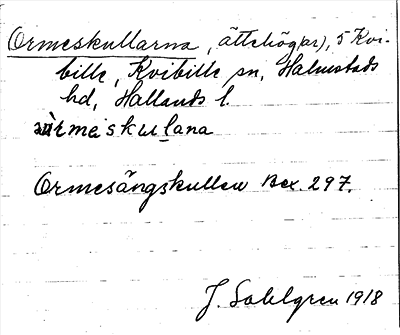 Ormeskullarna, ättehög(ar), 5 Kvi-
bille, Kvibille sn, Halmstads
hd, Hallands l.
ùrmeskulana
Ormesängskullen Bex. 297.
J. Sahlgren 1918